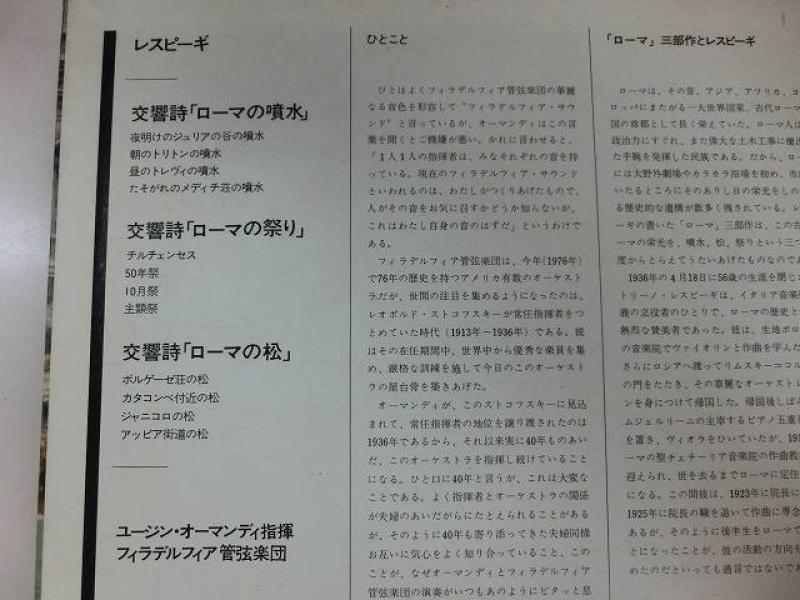 レスピーギ
交響詩「ローマの噴水」
夜明けのジュリアの谷の噴水
朝のトリトンの噴水
昼のトレヴィの噴水
たそがれのメディチ荘の噴水
交響詩「ローマの祭り」
チルチェンセス
50年祭
10月祭
主顕祭
交響詩「ローマの松」
ボルゲーゼ荘の松
カタコンベ付近の松
ジャニコロの松
アッピア街道の松
ユージン・オーマンディ指揮
フィラデルフィア管弦楽団
ひとこと
ひとはよくフィラデルフィア管弦楽団の華麗
なる音色を形容して“フィラデルフィア・サウ
ンド”と言っているが、オーマンディはこの言
葉を聞くとご機嫌が悪い。かれに言わせると、
「1人1人の指揮者は、みなそれぞれの音を持
っている。現在のフィラデルフィア・サウンド
といわれるのは、わたしがつくりあげたもので、
人がその音をお気に召すかどうか知らないが、
これはわたし自身の音のはずだ」というわけで
ある。
フィラデルフィア管弦楽団は、今年(1976年)
で76年の歴史を持つアメリカ有数のオーケスト
ラだが、世間の注目を集めるようになったのは、
レオポルド・ストコフスキーが常任指揮者をつ
とめていた時代(1913年−1936年)である。彼
はその在任期間中、世界中から優秀な楽員を集
め、厳格な訓練を施して今日のこのオーケスト
ラの屋台骨を築きあげた。
オーマンディが、このストコフスキーに見込
まれて、常任指揮者の地位を譲り渡されたのは
1936年であるから、それ以来実に40年ものあい
だ、このオーケストラを指揮し続けていること
になる。ひと口に40年と言うが、これは大変な
ことである。よく指揮者とオーケストラの関係
が夫婦のあいだがらにたとえられることがある
が、そのように40年も寄り添ってきた夫婦同様
お互いに気心をよく知り合っていること、この
ことが、なぜオーマンディとフィラデルフィア
管弦楽団の演奏がいつもあのようにピタッと息
「ローマ」三部作とレスピーギ
ローマは、その昔、アジア、アフリカ、ヨ
ロッパにまたがる一大世界国家、古代ローマ
国の首都として長く栄えていた。ローマ人は
政治力にすぐれ、また偉大な土木工事に
た手腕を発揮した民族である。だから、ロー
には大野外劇場やカラカラ浴場を初め、市
いたるところにそのありし日の栄光をしの
る歴史的な遺構が数多く残されている。レ
ーギの書いた「ローマ」三部作は、この古
ーマの栄光を、噴水、松、祭りという三つ
度からとらえてうたいあげたものなのであ
1936年の4月18日に56歳の生涯を閉じ
トリーノ・レスピーギは、イタリア音楽
義の立役者のひとりで、ローマの歴史と
熱烈な賛美者であった。彼は、生地ボロ
の音楽院でヴァイオリンと作曲を学んだ
さらにロシアへ渡ってリムスキー=コル
の門をたたき、その華麗なオーケストレ
ンを身につけて帰国した。帰国後しばら
ムジェルリーニの主宰するピアノ五重
を置き、ヴィオラをひいていたが、191
ーマの聖チェチーリア音楽院の作曲教
迎えられ、世を去るまでローマに定住
になる。この間彼は、1923年に院長に
1925年に院長の職を退いて作曲に専念
あるが、そのように後半生をローマで
とになったことが、彼の活動の方向を
めたのだといっても過言ではないであ